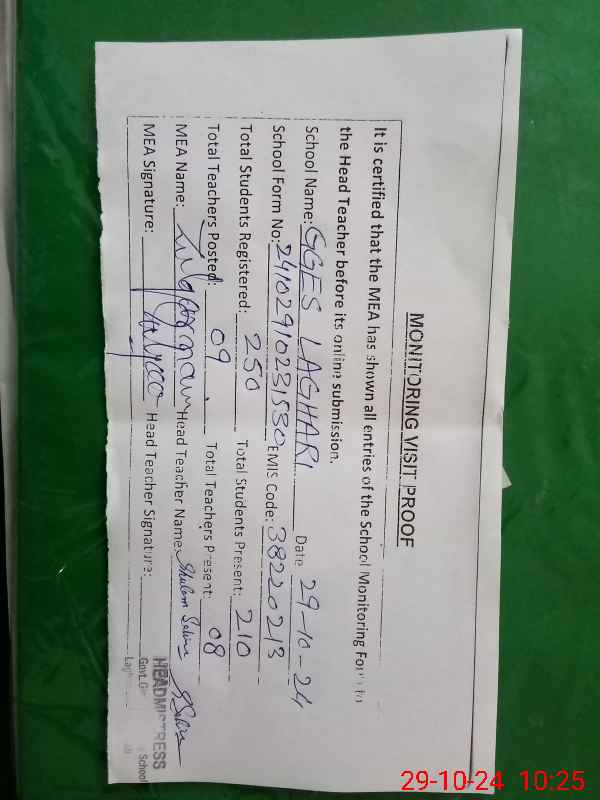 MONITORING VISIT PROOF
It is certified that the MEA has shown all entries of the School Monitoring Form to
the Head Teacher before its online submission.
School Name: GGES LAGHARI Date 29-10-24
School Form No: 24102910231530 EMIS Code: 38220213
Total Students Registered: 250 Total Students Present: 210
Total Teachers Posted: 09 Total Teachers Present: 08
MEA Name: Head Teacher Name:
MEA Signature: Head Teacher Signature:
HEADMISTRESS
Govt. School
29-10-24 10:25